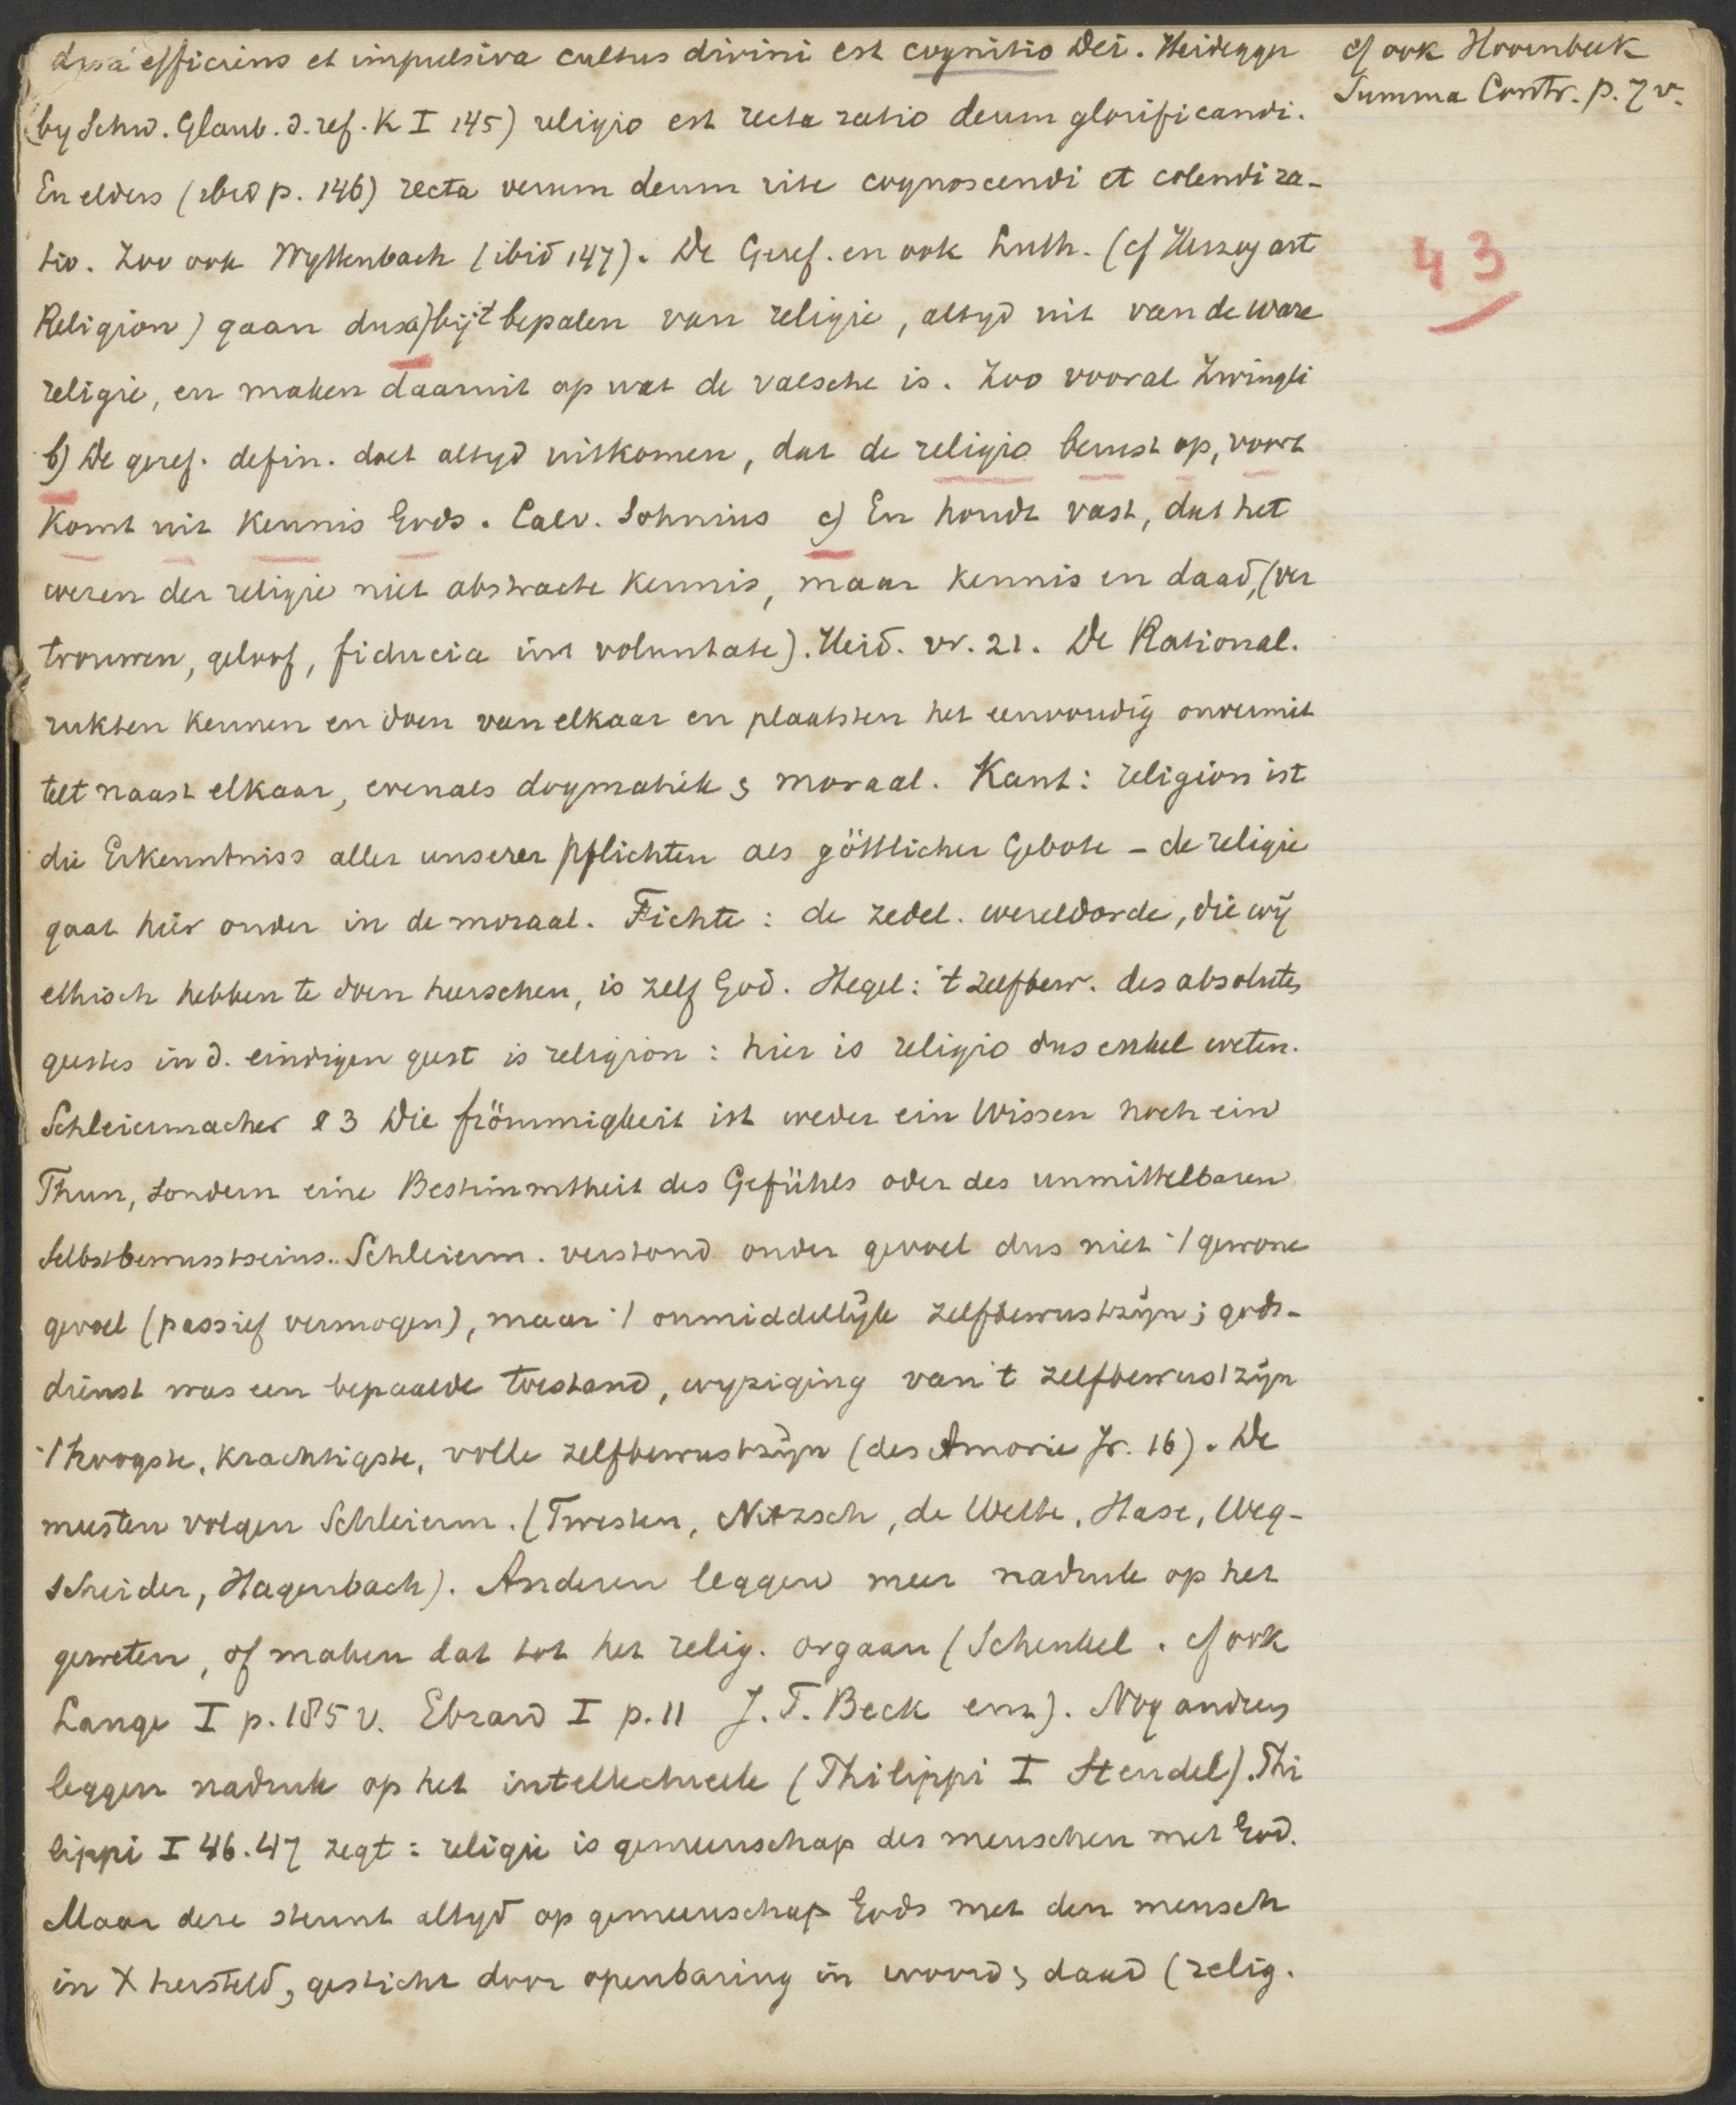 causa efficiens et impulsiva cultus divini est cognitio Dei. Heidegger
(by Schw. Glaub. d. ref. K I 145) religio est recta ratio deum glorificandi.
En elders (ibid p. 146) recta verum deum rite cognoscendi et colendi ra-
tio. Zoo ook Wyttenbach (ibid 147). De Geref. en ook Luth. (cf Herzog art
Religion) gaan dus a) bij 't bepalen van religie, altyd uit van de ware
religie, en maken daaruit op wat de valsche is. Zoo vooral Zwingli
b) De geref. defin. doet altyd uitkomen, dat de religio berust op, voort
komt uit kennis Gods. Calv. Sohnius c) En houdt vast, dat het
wezen der religie niet abstracte kennis, maar kennis en daad, (ver
trouwen, geloof, fiducia in voluntate). Heid. vr. 21. De Rational.
rukten kennen en doen van elkaar en plaatsten het eenvoudig onvermit
telt naast elkaar, evenals dogmatiek & moraal. Kant: religion ist
die Erkenntniss aller unserer pflichten als göttlicher Gebote – de religie
gaat hier onder in de moraal. Fichte: de zedel. wereldorde, die wij
ethisch hebben te doen heerschen, is zelf God. Hegel: 't zelfbew. des absoluten
geestes in d. eindigen geest is religion: hier is religio dus enkel weten.
Schleiermacher § 3 Die frömmigkeit ist weder ein Wissen noch ein
Thun, sondern eine Bestimmtheit des Gefühls oder des unmittelbaren
Selbstbewusstseins. Schleierm. verstond onder gevoel dus niet 't gewone
gevoel (passief vermogen), maar 't onmiddellijk zelfbewustzijn; gods-
dienst was een bepaalde toestand, wyziging van 't zelfbewustzijn
't hoogste, krachtigste, volle zelfbewustzijn (des Amorie Jr. 16). De
meesten volgen Schleierm. (Twesten, Nitzsch, de Wette, Hase, Weg-
scheider, Hagenbach). Anderen leggen meer nadruk op het
geweten, of maken dat tot het relig. orgaan (Schenkel. cf ook
Lange I p. 185 v. Ebrard I p. 11 J. T. Beck enz). Nog anderen
leggen nadruk op het intellectueele (Philippi I Steudel). Phi
lippi I 46.47 zegt: religie is gemeenschap des menschen met God.
Maar deze steunt altyd op gemeenschap Gods met den mensch
in X hersteld, gesticht door openbaring in woord & daad (relig.
cf ook Hoornbeek
Summa Contr. p. 7 v.
43